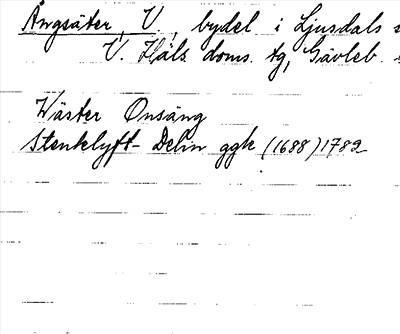 Ångsäter, V., bydel i Ljusdals s
V. Häls. doms. tg, Gävleb.
Wäster Onsäng
Stenklyft - Delin ggk (1688) 1782